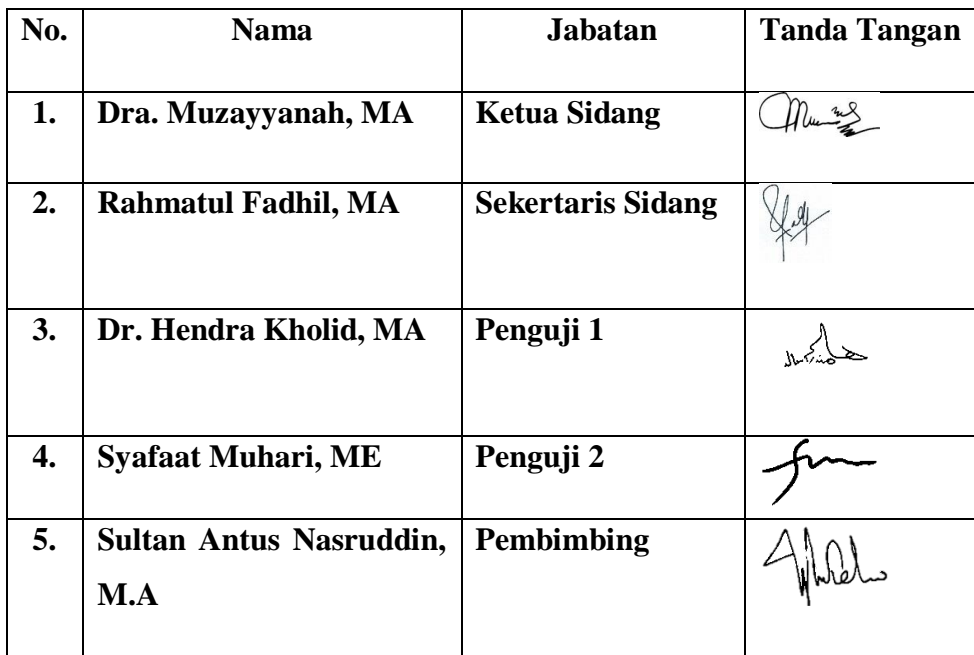 No. Nama Jabatan Tanda Tangan
1. Dra. Muzayyanah, MA Ketua Sidang
2. Rahmatul Fadhil, MA Sekertaris Sidang
3. Dr. Hendra Kholid, MA Penguji 1
4. Syafaat Muhari, ME Penguji 2
5. Sultan Antus Nasruddin, Pembimbing
M.A